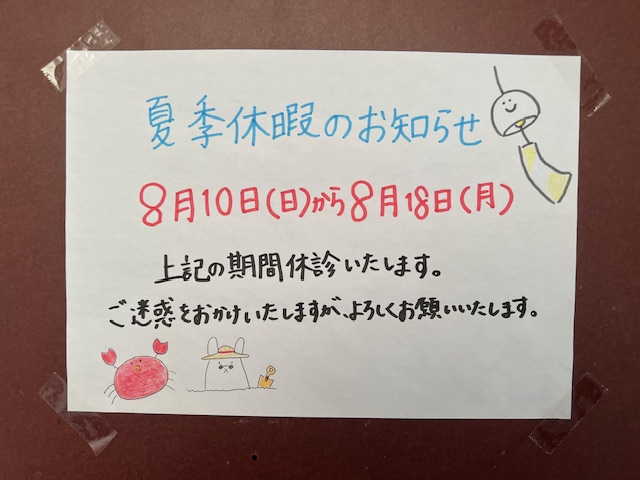 夏季休暇のお知らせ
8月10日(日)から8月18日(月)
上記の期間休診いたします。
ご迷惑をおかけいたしますが、よろしくお願いいたします。